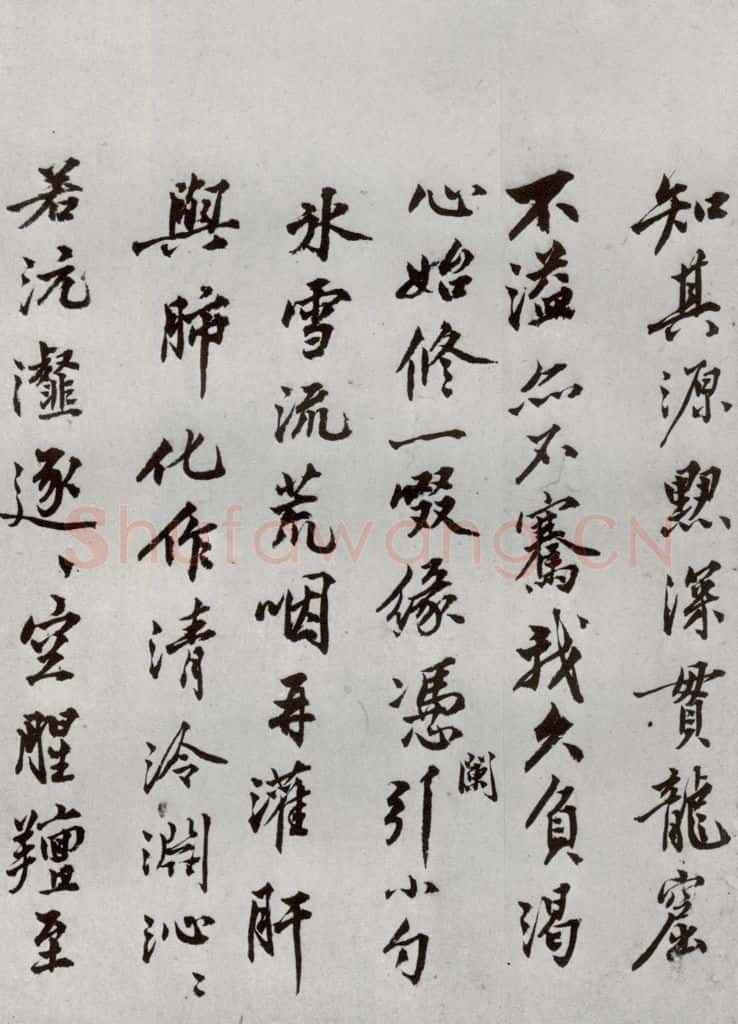 知其源黙深貫龍窟
不溢亦不騫我久負渴
心始修一啜緣憑引小勺
闌
氷雪流荒咽再灌肝
與肺化作清泠淵沁〻
若沆瀣逐〻空腥羶至
Shufawang.CN